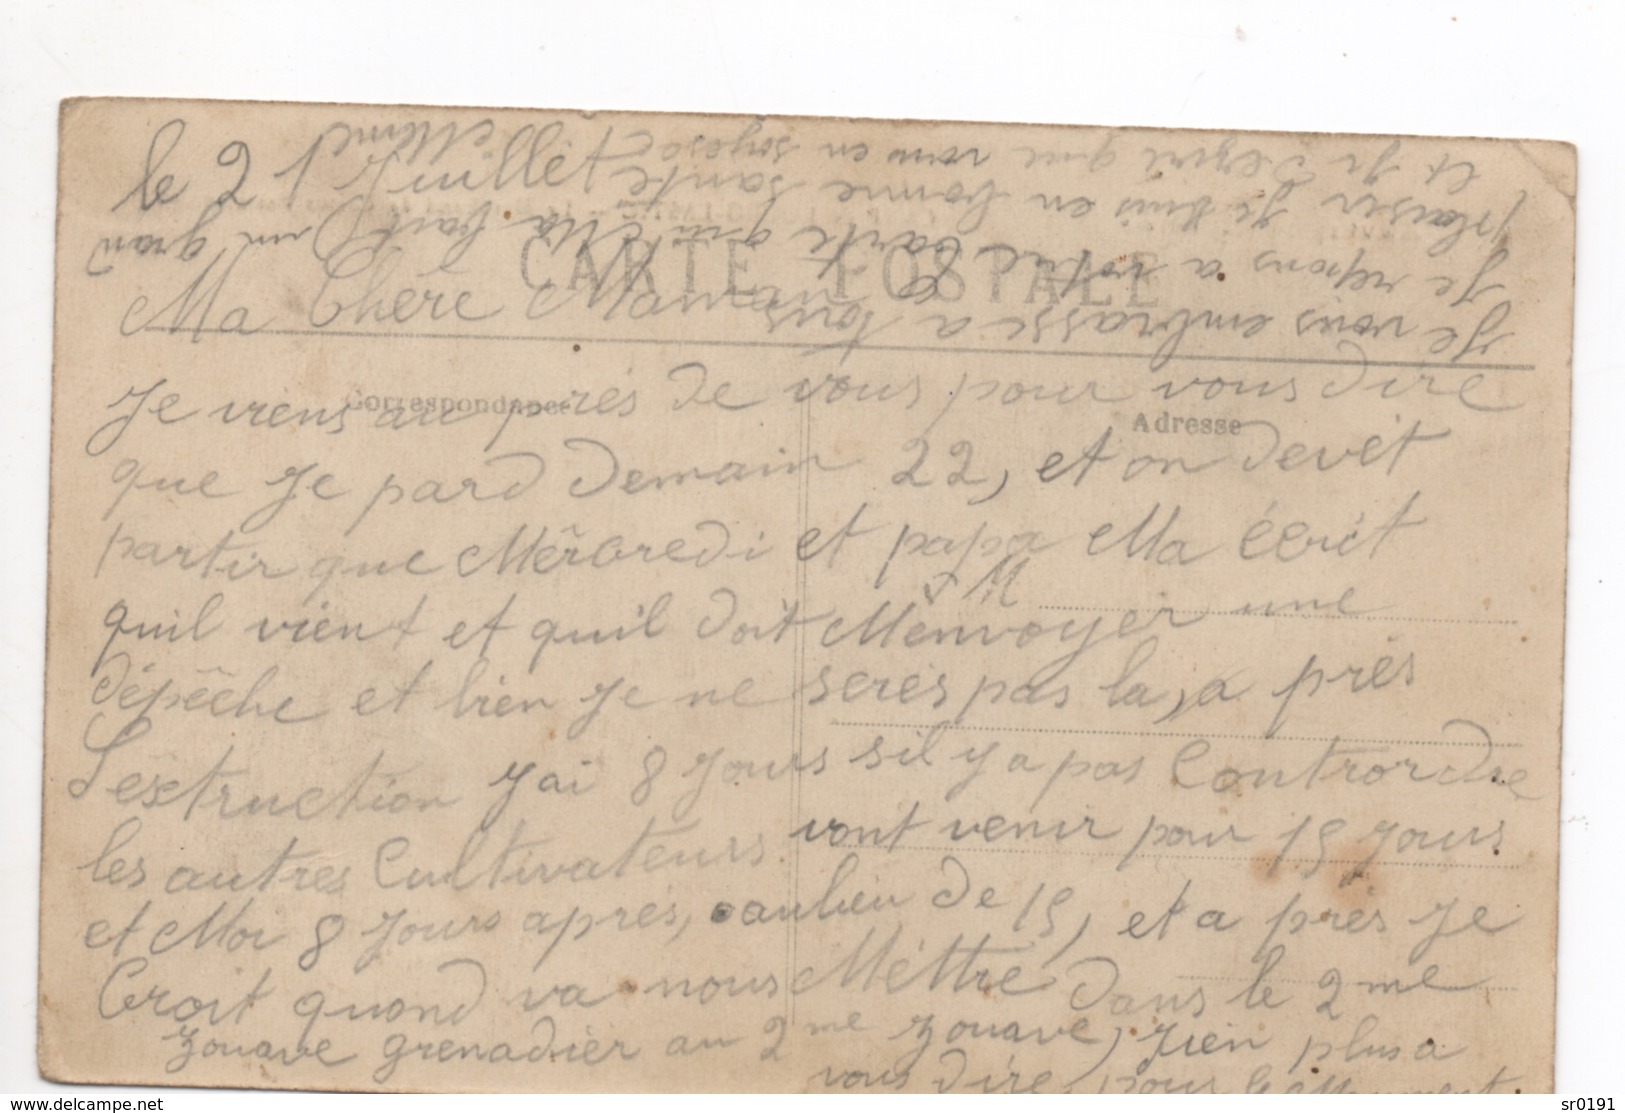 le 21 Juillèt
CARTE POSTALE
Ma Chère Maman
Correspondance
Adresse
Je viens au près de vous pour vous dire
que Je pard demain 22, et on devèt
partir que Mêrcredi et papa Ma écrit
quil vient et quil doit M'envoyer une
dépêche et bien Je ne serès pas la, a près
L'èxtruction J'ai 8 Jours sil y a pas Contrordre
les autres Cultivateurs vont venir pour 15 Jours
et Moi 8 Jours après, aulieu de 15, et a près Je
Croit quond va nous Mèttre dans le 2me
zouave grenadièr au 2me zouave, rien plus a
vous dire pour le Moment.
Je vous embrasse a tous
Je repons a votre Carte qui Ma fait un grand
plaisir Je suis en bonne santé
et Je dezire que vous en soyez
Même
https://www.delcampe.net
sr0191